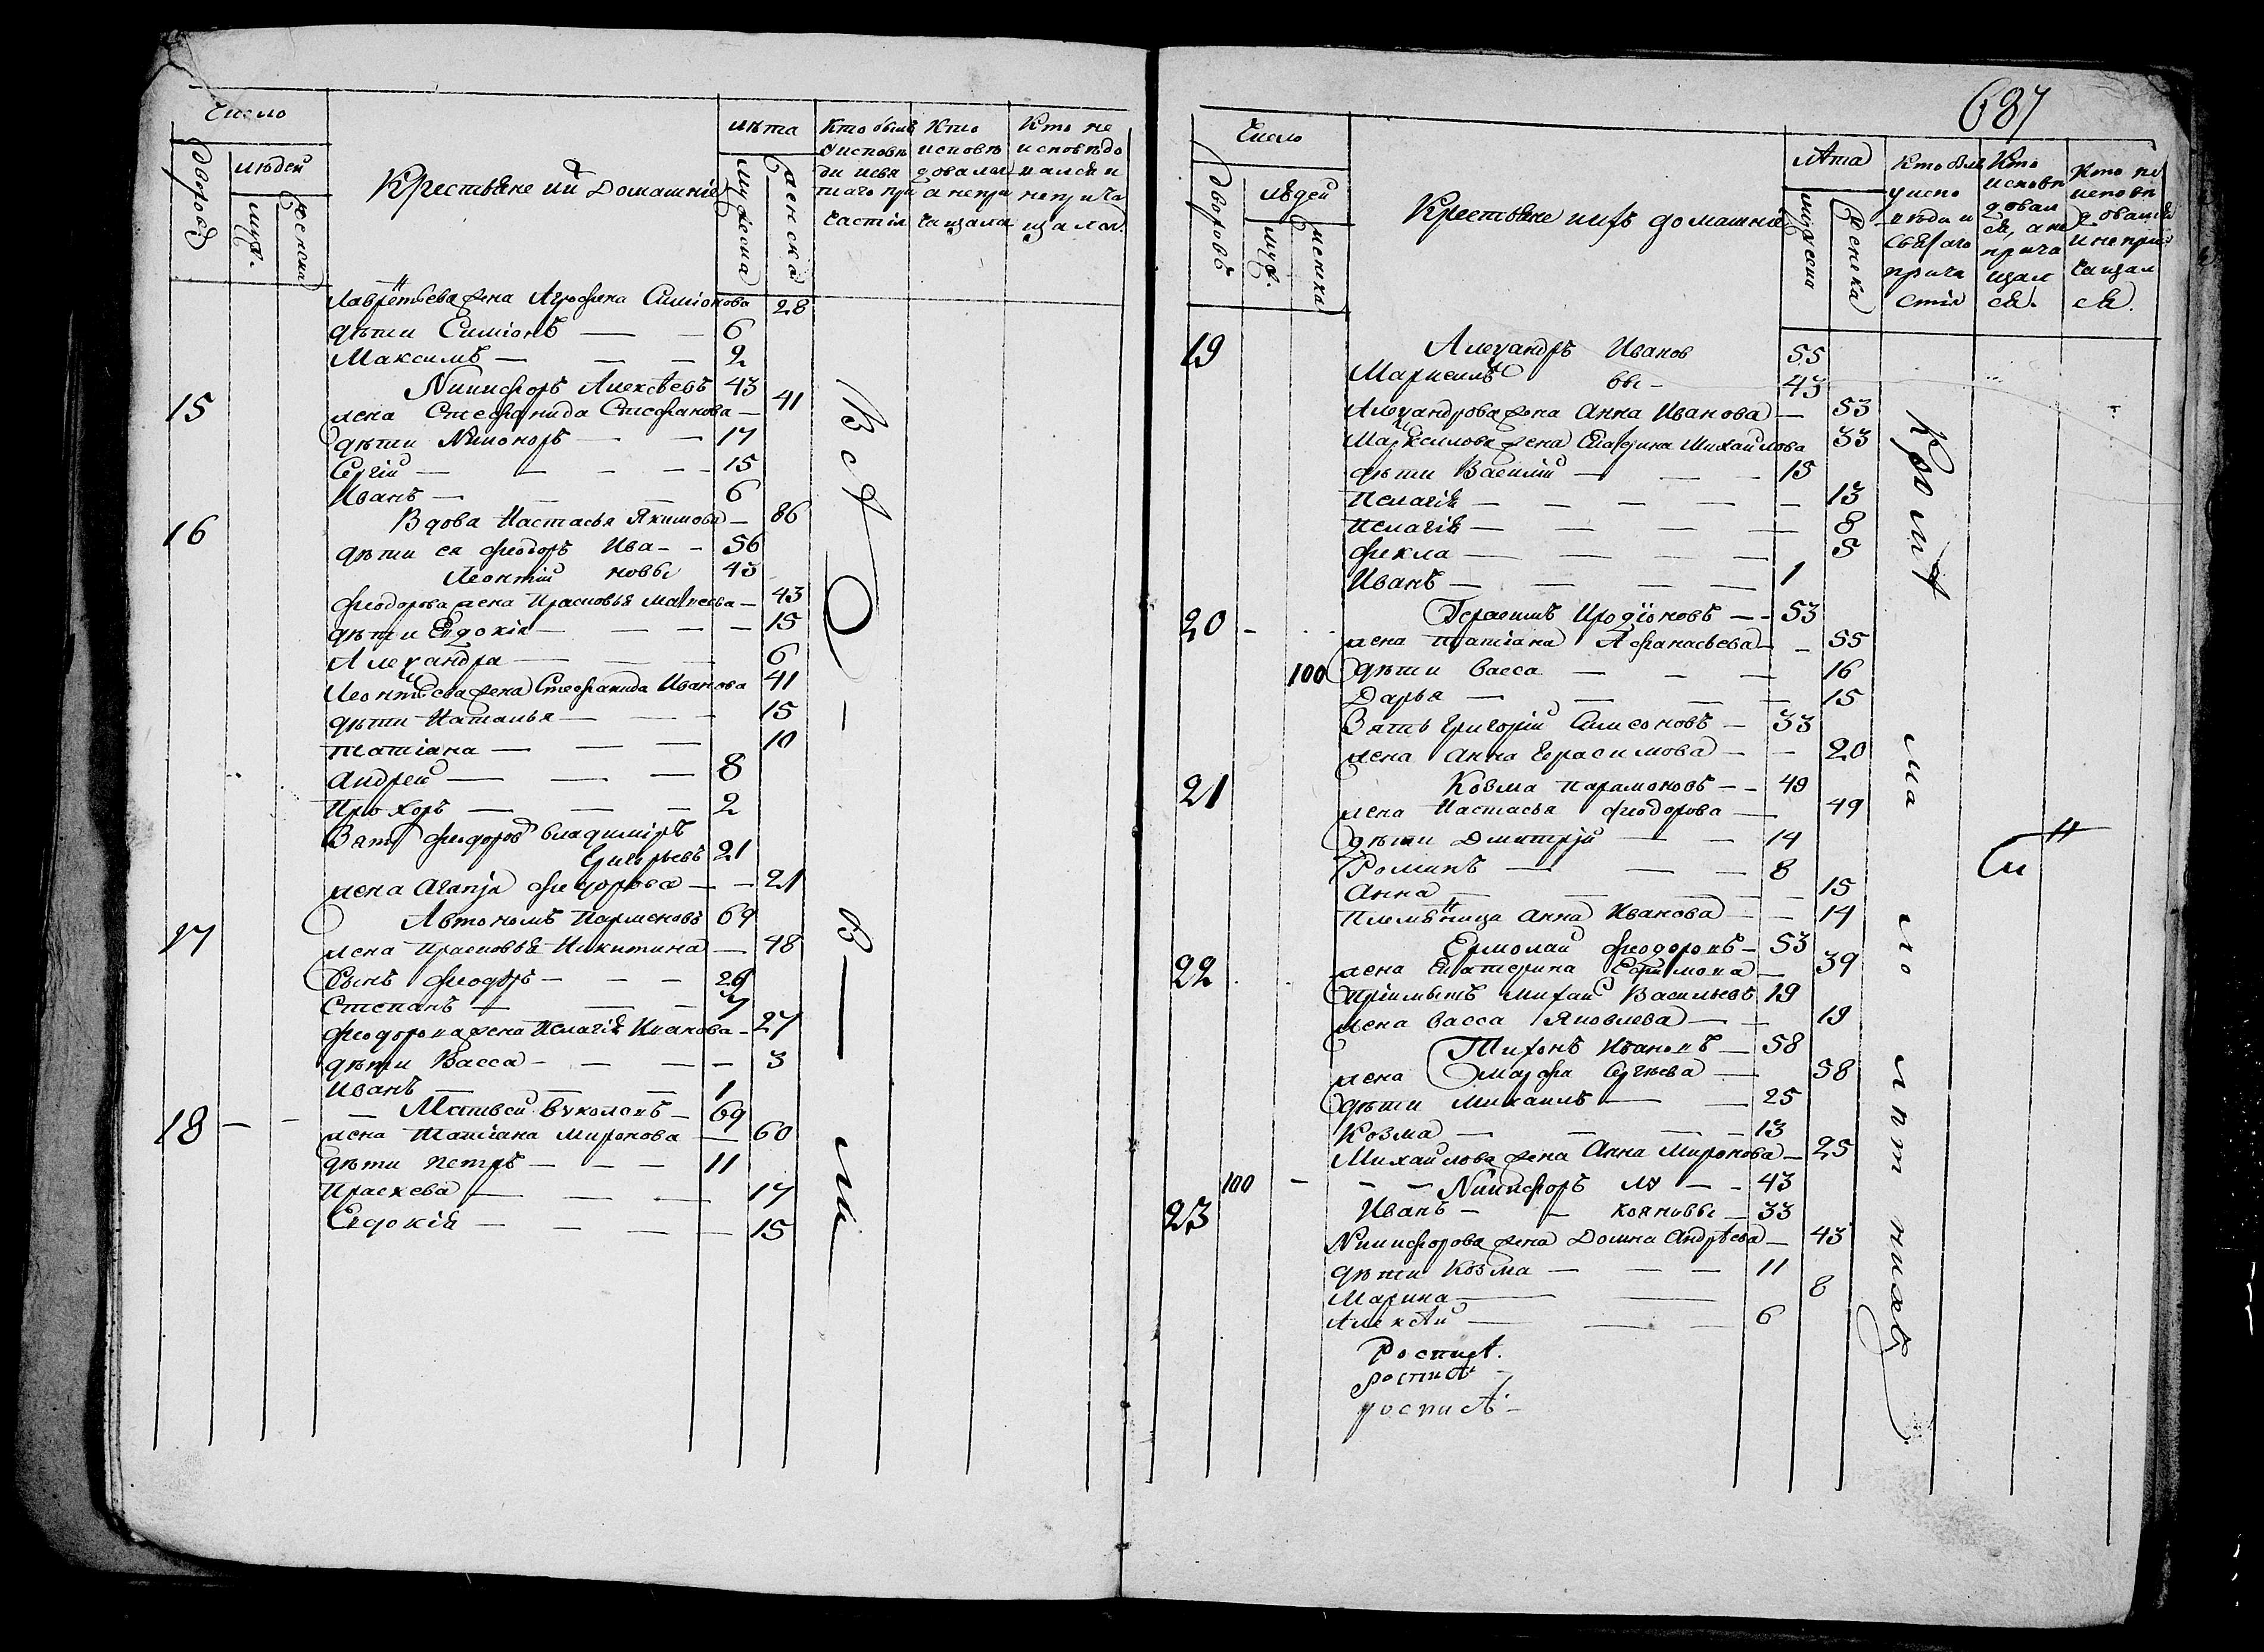 Число
дворовъ
людей
муж.
женска
Крестьяне и ихъ домашніе
лѣта
мужеска
женска
Кто былъ у исповѣди и свя таго при частія
Кто исповѣ довался а непри чащался
Кто не исповѣдо вался и неприча щался.
Лаврентьева жена Агрофена Симіонова 28
дѣти Симіонъ — — 6
Максимъ — — — 2
15 Никифоръ Алексѣевъ 43
жена Стефанида Стефанова — 41
дѣти Никоноръ — — 17
Сергій — — — — 15
Иванъ — — — 6
16 Вдова Настасья Якимова — 86
дѣти ея Феодоръ Ива - - 56
Леонтій новы 43
Феодорова жена Прасковья Матвеева — 43
дѣти Евдокія — — — — 15
Александра — — — 6
Леонтьева жена Стефанида Иванова 41
дѣти Наталья — — — 15
Татіана — — — 10
Андрей — — — 8
Прохоръ — — — 2
Зять Феодоровъ Владиміръ
Григорьевъ 21
жена Агапія Феодорова — — 21
17 Автономъ Парменовъ 69
жена Прасковья Никитина — 48
Сынъ Феодоръ — — — 29
Степанъ — — — 7
Феодорова жена Пелагія Иванова — 27
дѣти Васса — — — — 3
Иванъ — — — 1
18 — — — Матвей Вуколовъ — 69
жена Татіана Миронова — 60
дѣти Петръ — — — 11
Праскева — — — 17
Евдокія — — — — 15
Всѣ — — в — ли
687
Число
дворовъ
людей
муж.
женска
Крестьяне и ихъ домашніе
лѣта
мужеска
женска
Кто былъ у испо вѣди и святаго прича стія
Кто исповѣ довал ся, а не прича щал ся.
Кто не исповѣ довался и непри чащал ся.
19 Александръ Иванов 55
Маркелъ вы — 43
Александрова жена Анна Иванова — 53
Маркелова жена Екатерина Михайлова 33
дѣти Василій — — — 15
Пелагія — — — — — 13
Пелагія — — — — — 8
Фекла — — — — 5
Иванъ — — — — 1
20 — Герасимъ Иродіоновъ — - 53
жена Татіана Афанасьева — — 55
100 дѣти Васса — — — 16
Дарья — — — — 15
Зять Григорій Симеоновъ — 33
жена Анна Герасимова — — 20
21 Козма Парамоновъ — - 49
жена Настасья Феодорова — 49
дѣти Дмитрій — — 14
Романъ — — — 8
Анна — — — — 15
Племѣнница Анна Иванова — — 14
22 Ермолай Феодоровъ — 53
жена Екатерина Ефимова — 39
Пріимышъ Михаил Васильевъ 19
жена Васса Яковлева — — 19
Тихонъ Ивановъ — 58
жена Марфа Сергѣева — 58
дѣти Михаилъ — — 25
Козма — — — — 13
Михайлова жена Анна Миронова — 25
100 — — — Никифоръ Лу — - 43
23 Иванъ — — кояновы — 33
Никифорова жена Домна Андрѣева — 43
дѣти Козма — — — 11
Марина — — 8
Алексѣй — — — 6
Роспис.
роспис -
роспис -
Кромѣ ма ло лѣт нихъ